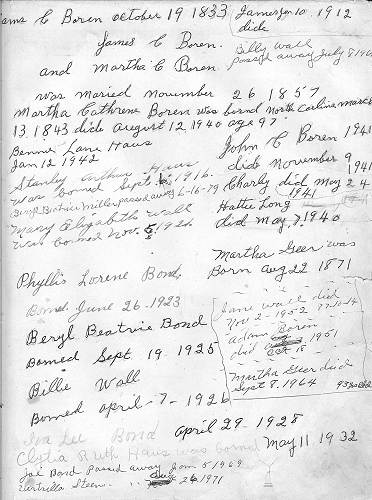 ams C Boren october 19 1833
James Jan 10 1912
dide
James C Boren.
and Martha C Boren
Billy wall
passed away July 8
was Maried Novumber 26 1857
Martha Cathrene Boren was bornd North Carlina March
13.1843 dide august 12 1940 age 97
Bennie Lane Haus
Jan 12 1942
John C Boren 1941
did November 9
1941
Stanley Arthur Haus
was borned Sept. 6. 1916.
Beryl Beatrice Miller passed away 6-16-79
Charly did May 24
1941
Hattie Long
did may. 7. 1940
Mary Elizabeth Wall
was borned Nov. 5 1921
Martha Geer was
Born aug 22 1871
Phyllis Lorene Bond.
Borned. June 26. 1923
Jane wall did
Nov 2-1952
adam Boren
did 1951
Oct 15
Martha Geer did
Sept 8. 1964 93
Beryl Beatrice Bond
Borned Sept. 19. 1925
Billie Wall
Borned april-7-1926
Iva Lee Bond april 29-1928
Ruth Haus was borned May 11 1932
Joe Bond Passed away Jan 5 1969
Steen. 26, 1971